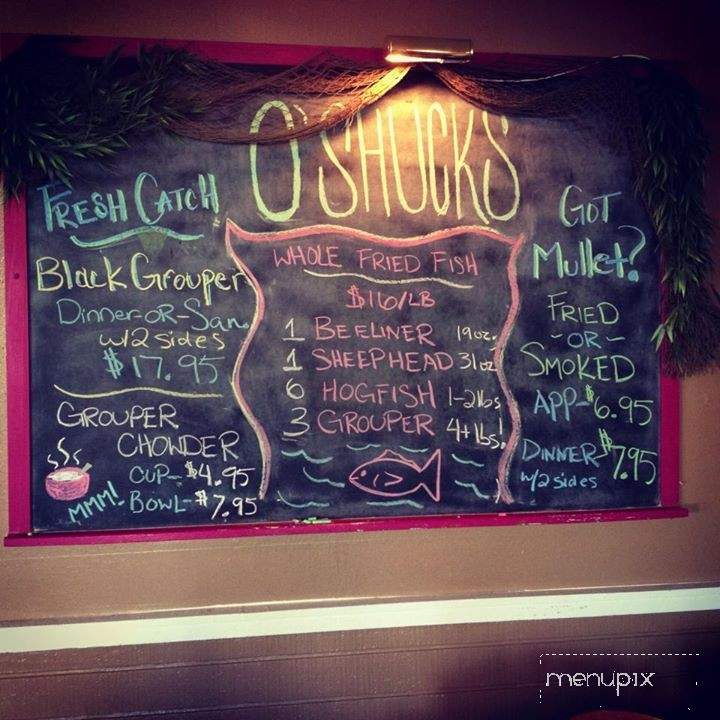 O'SHUCKS
FRESH CATCH
Black Grouper
Dinner-OR-San.
w/2 sides
$17.95
GROUPER
CHOWDER
CUP-$4.95
MMM!
BOWL-$7.95
WHOLE FRIED FISH
$16/LB
1 BEELINER 19oz.
1 SHEEPHEAD 31oz
6 HOGFISH 1-2lbs
3 GROUPER 4+lbs!
GOT
Mullet?
FRIED
-OR-
SMOKED
APP-$6.95
DINNER-$7.95
w/2 sides
menupix